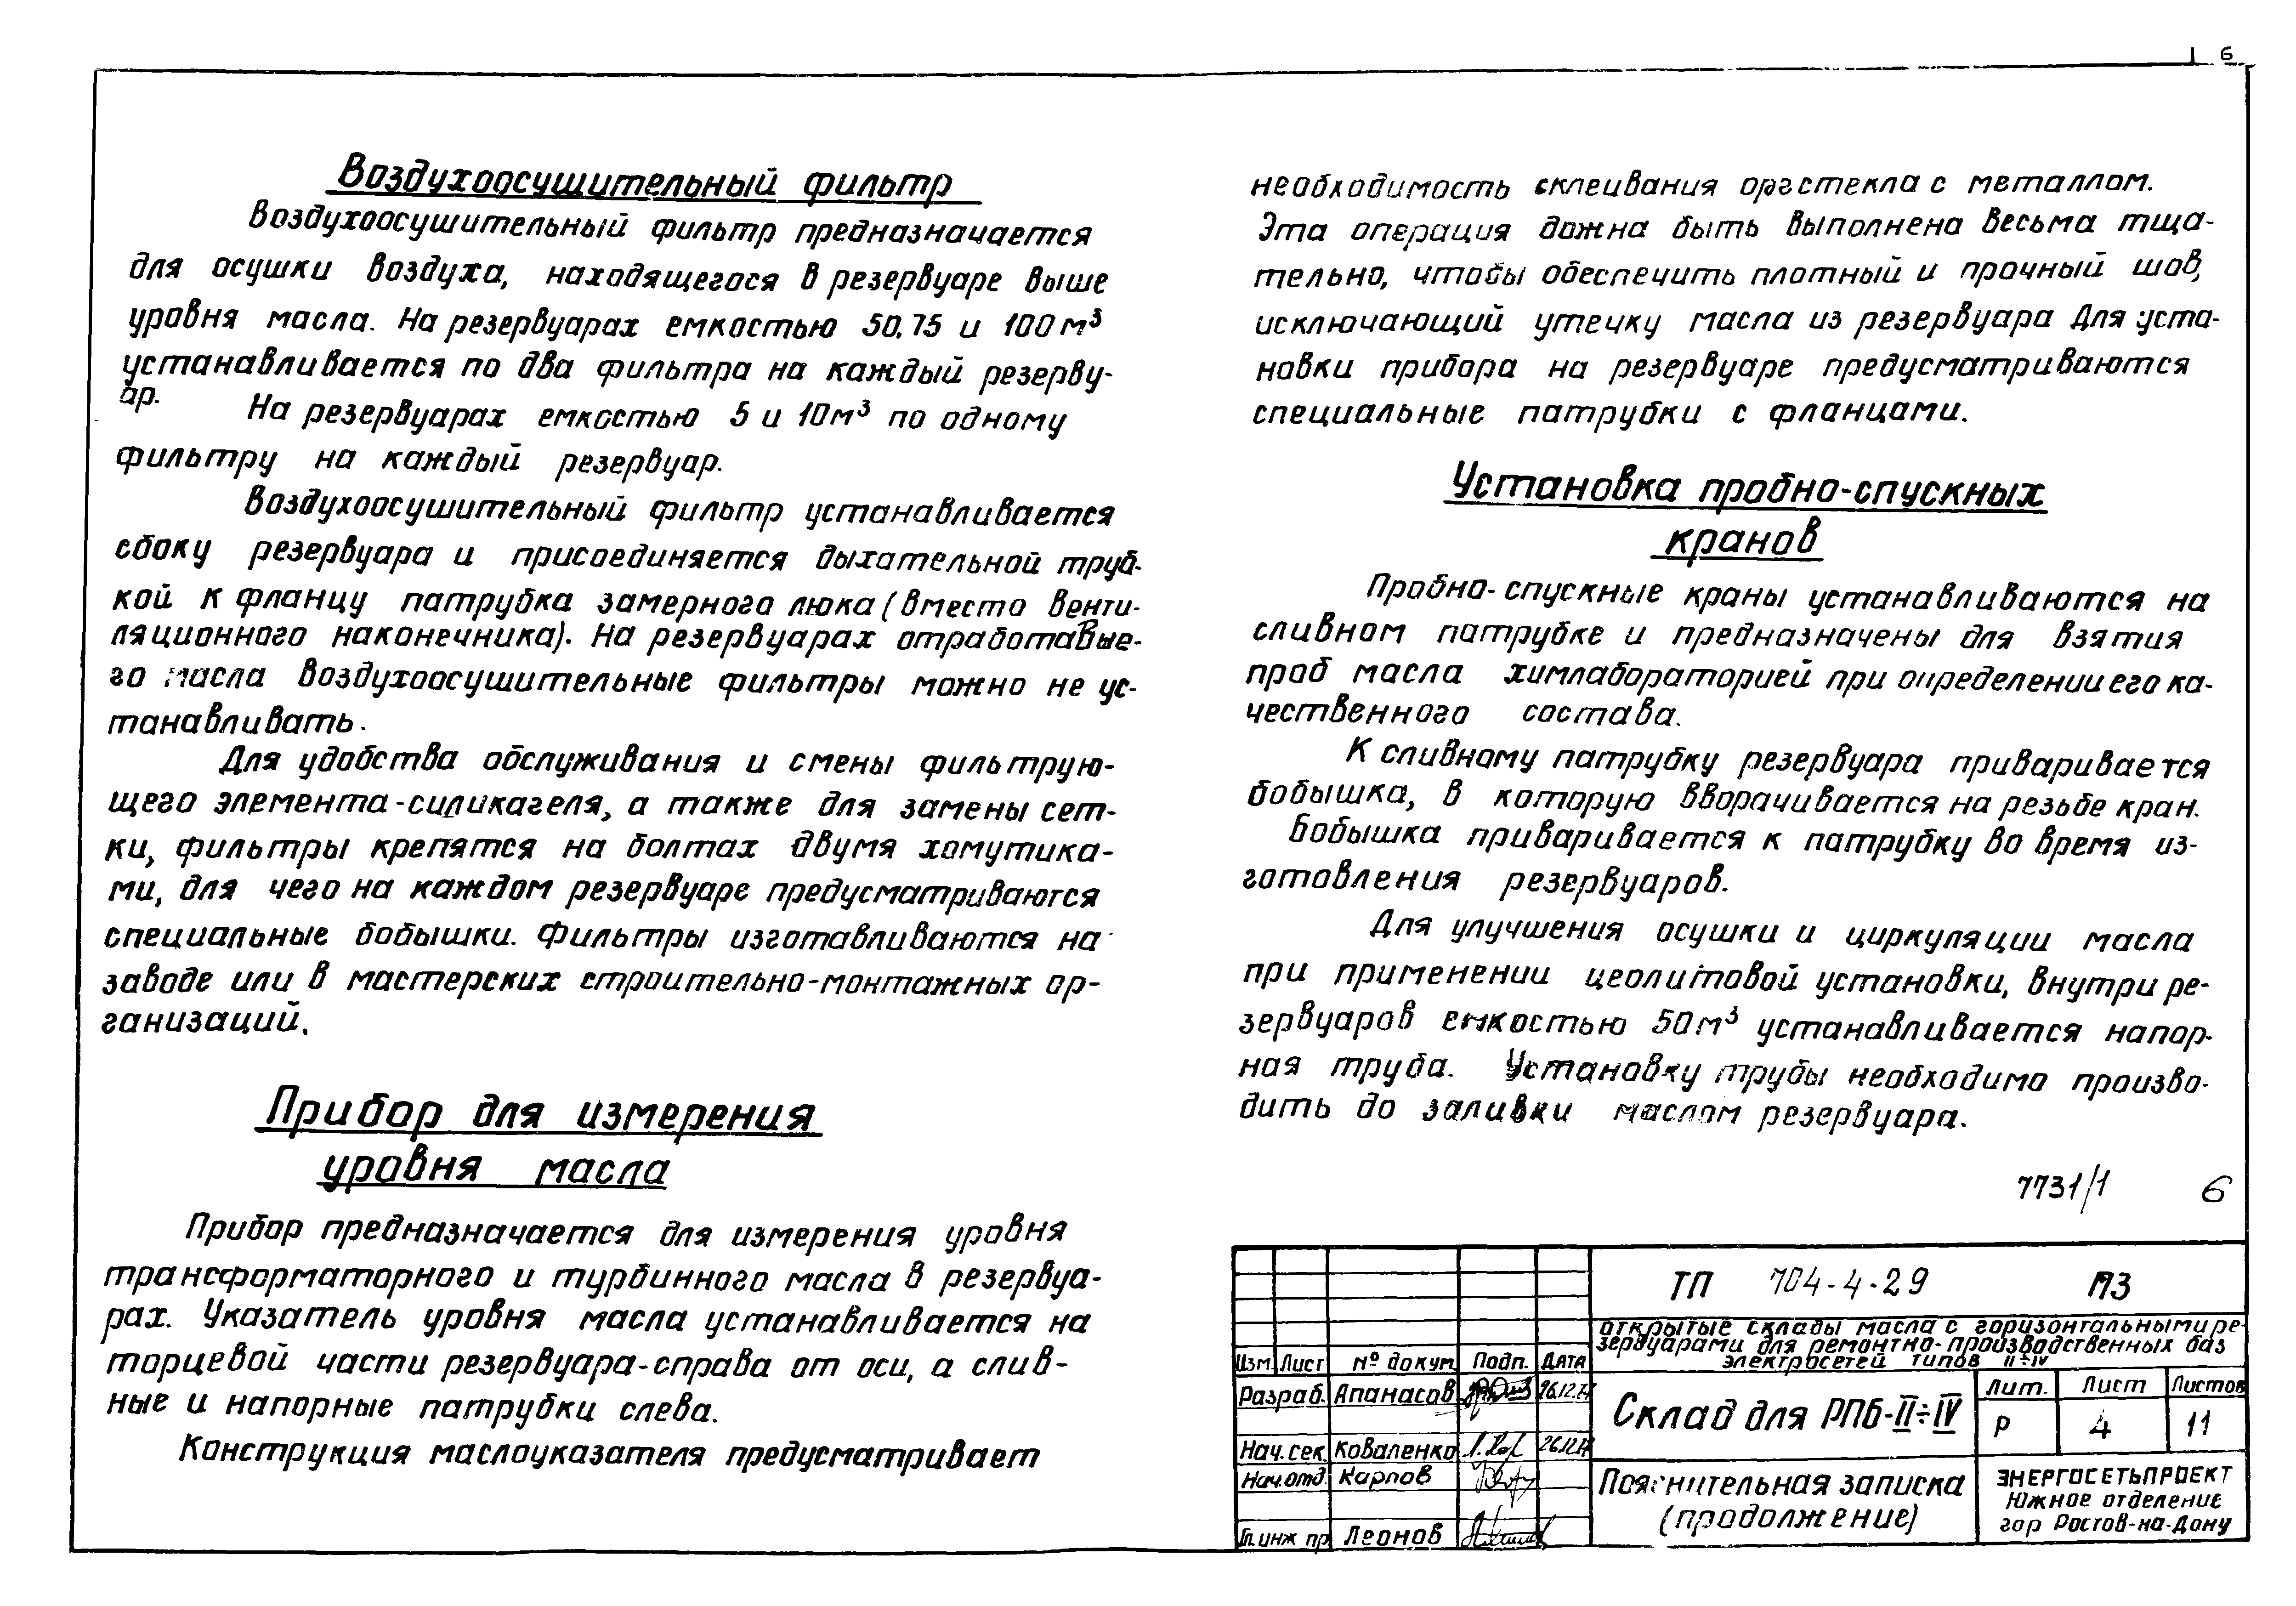 6
Воздухоосушительный фильтр
Воздухоосушительный фильтр предназначается
для осушки воздуха, находящегося в резервуаре выше
уровня масла. На резервуарах емкостью 50, 75 и 100 м³
устанавливается по два фильтра на каждый резерву-
ар.
На резервуарах емкостью 5 и 10м³ по одному
фильтру на каждый резервуар.
Воздухоосушительный фильтр устанавливается
сбоку резервуара и присоединяется дыхательной труб-
кой к фланцу патрубка замерного люка (вместо венти-
ляционного наконечника). На резервуарах отработавше-
го масла воздухоосушительные фильтры можно не ус-
танавливать.
Для удобства обслуживания и смены фильтрую-
щего элемента-силикагеля, а также для замены сет-
ки, фильтры крепятся на болтах двумя хомутика-
ми, для чего на каждом резервуаре предусматриваются
специальные бобышки. Фильтры изготавливаются на
заводе или в мастерских строительно-монтажных ор-
ганизаций.
Прибор для измерения
уровня масла
Прибор предназначается для измерения уровня
трансформаторного и турбинного масла в резервуа-
рах. Указатель уровня масла устанавливается на
торцевой части резервуара-справа от оси, а слив-
ные и напорные патрубки слева.
Конструкция маслоуказателя предусматривает
необходимость склеивания оргстекла с металлом.
Эта операция дожна быть выполнена весьма тща-
тельно, чтобы обеспечить плотный и прочный шов,
исключающий утечку масла из резервуара Для уста-
новки прибора на резервуаре предусматриваются
специальные патрубки с фланцами.
Установка пробно-спускных
кранов
Пробно-спускные краны устанавливаются на
сливном патрубке и предназначены для взятия
проб масла химлабораторией при определении его ка-
чественного состава.
К сливному патрубку резервуара приваривается
бобышка, в которую вворачивается на резьбе кран.
Бобышка приваривается к патрубку во время из-
готовления резервуаров.
Для улучшения осушки и циркуляции масла
при применении цеолитовой установки, внутри ре-
зервуаров емкостью 50м³ устанавливается напор-
ная труба. Установку трубы необходимо произво-
дить до заливки маслом резервуара.
7731/1 6
ТП 704-4-29 ПЗ
открытые склады масла с горизонтальными ре-
зервуарами для ремонтно-производственных баз
электросетей типов II÷IV
Изм. Лист № докум. Подп. Дата
Разраб. Апанасов 26.12.77
Нач. сек. Коваленко 26.12.77
Нач. отд. Карпов
Гл. инж пр Леонов
Склад для РПБ-II÷IV
Лит. Лист Листов
Р 4 11
Пояснительная записка
(продолжение)
ЭНЕРГОСЕТЬПРОЕКТ
Южное отделение
гор Ростов-на-Дону